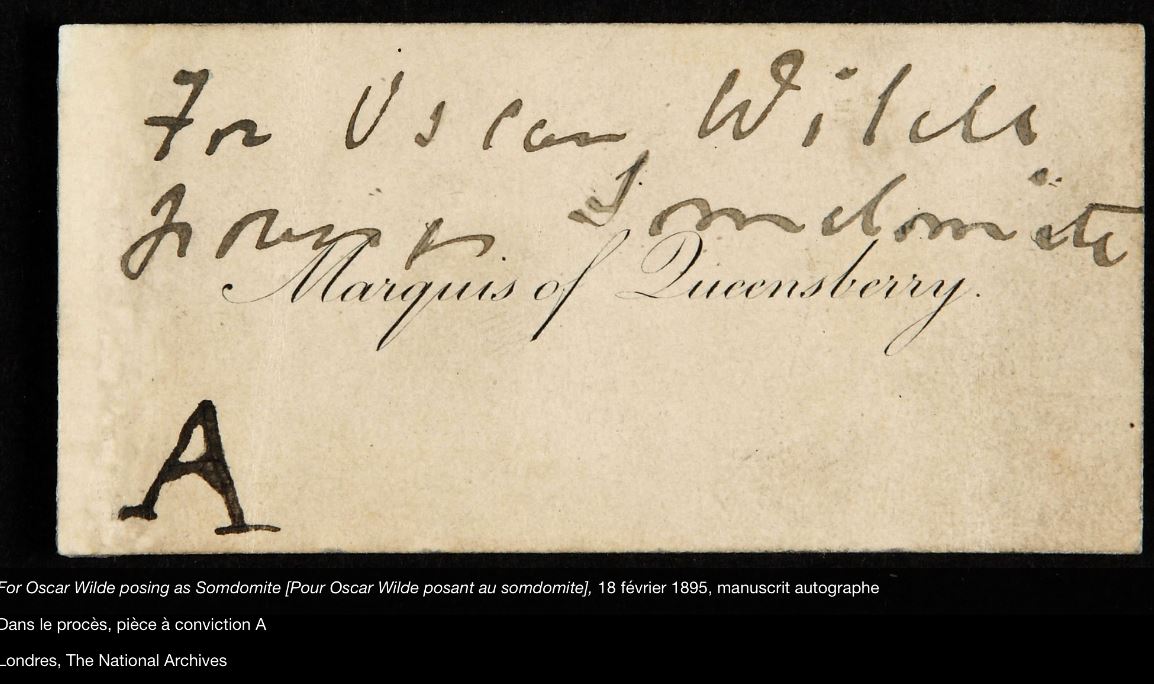 For Oscar Wilde
posing Somdomite
Marquis of Queensberry.
A
For Oscar Wilde posing as Somdomite [Pour Oscar Wilde posant au somdomite], 18 février 1895, manuscrit autographe
Dans le procès, pièce à conviction A
Londres, The National Archives